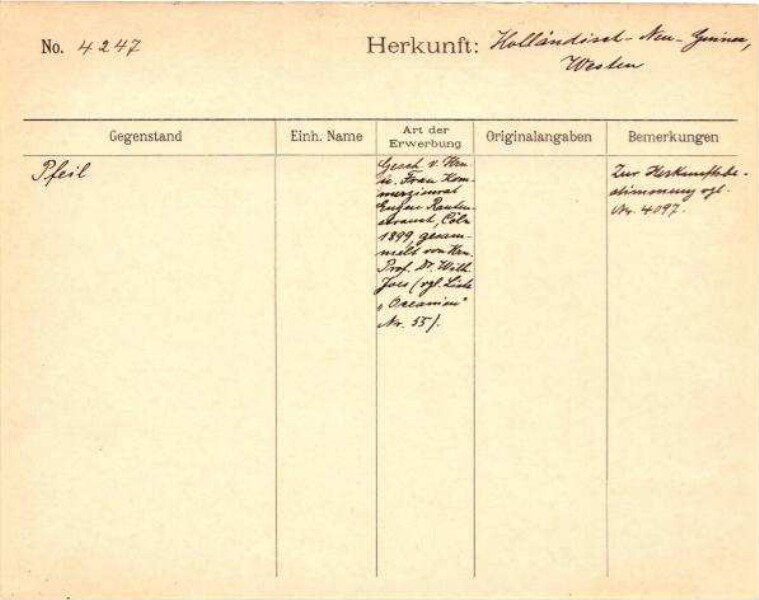 No. 4247
Herkunft: Holländisch-Neu-Guinea,
Westen
Gegenstand
Einh. Name
Art der
Erwerbung
Originalangaben
Bemerkungen
Pfeil
Gesch. v. Hrn
u. Frau Kom-
merzienrat
Eugen Rauten-
strauch, Cöln
1899, gesam-
melt von Hrn.
Prof. Dr. Wilh.
Joest (vgl. Liste
„Ozeanien"
Nr. 55).
Zur Herkunftsbe-
stimmung vgl.
Nr. 4097.